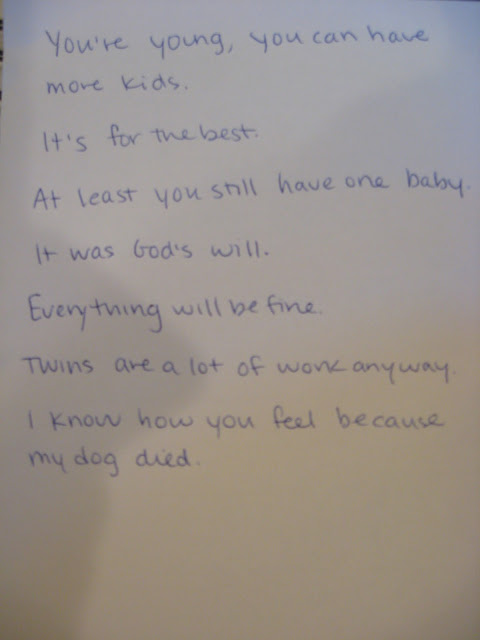 You're young, you can have
more kids.
It's for the best.
At least you still have one baby.
It was God's will.
Everything will be fine.
Twins are a lot of work anyway.
I know how you feel because
my dog died.